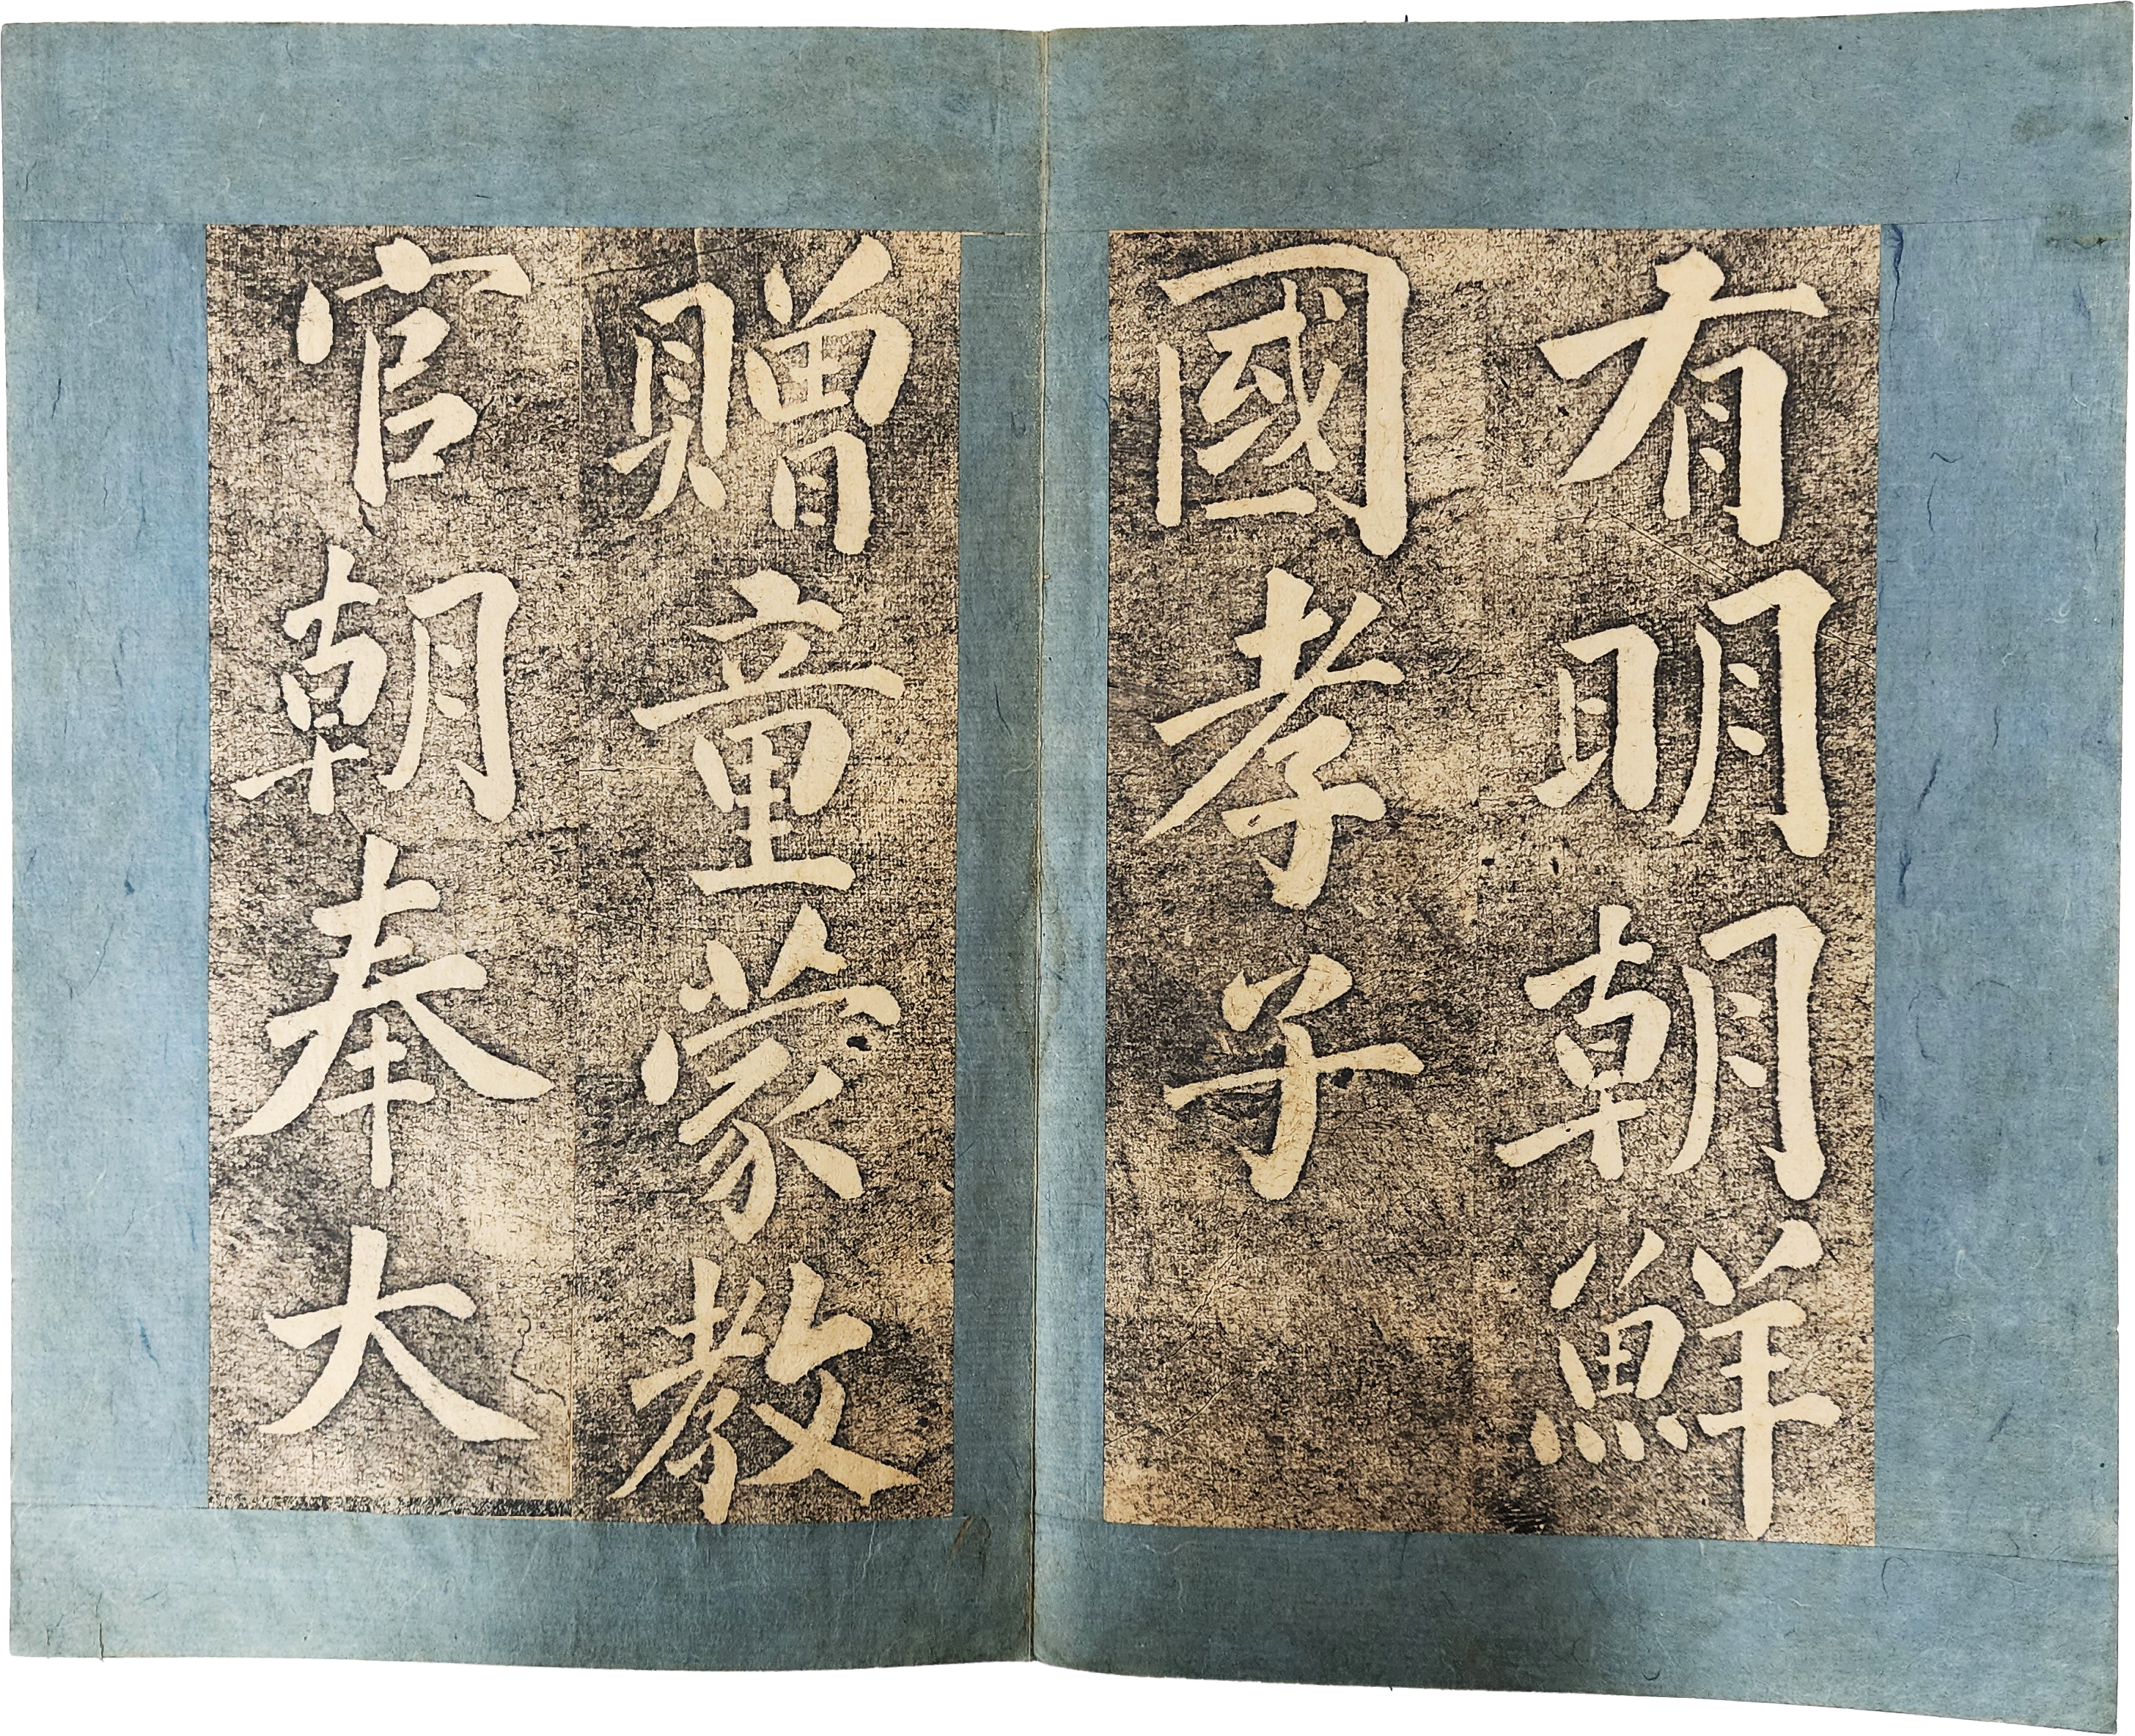 有明朝鮮
國孝子
贈童蒙教
官朝奉大